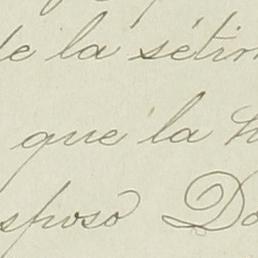 de la sétim
que la h
sposo Do